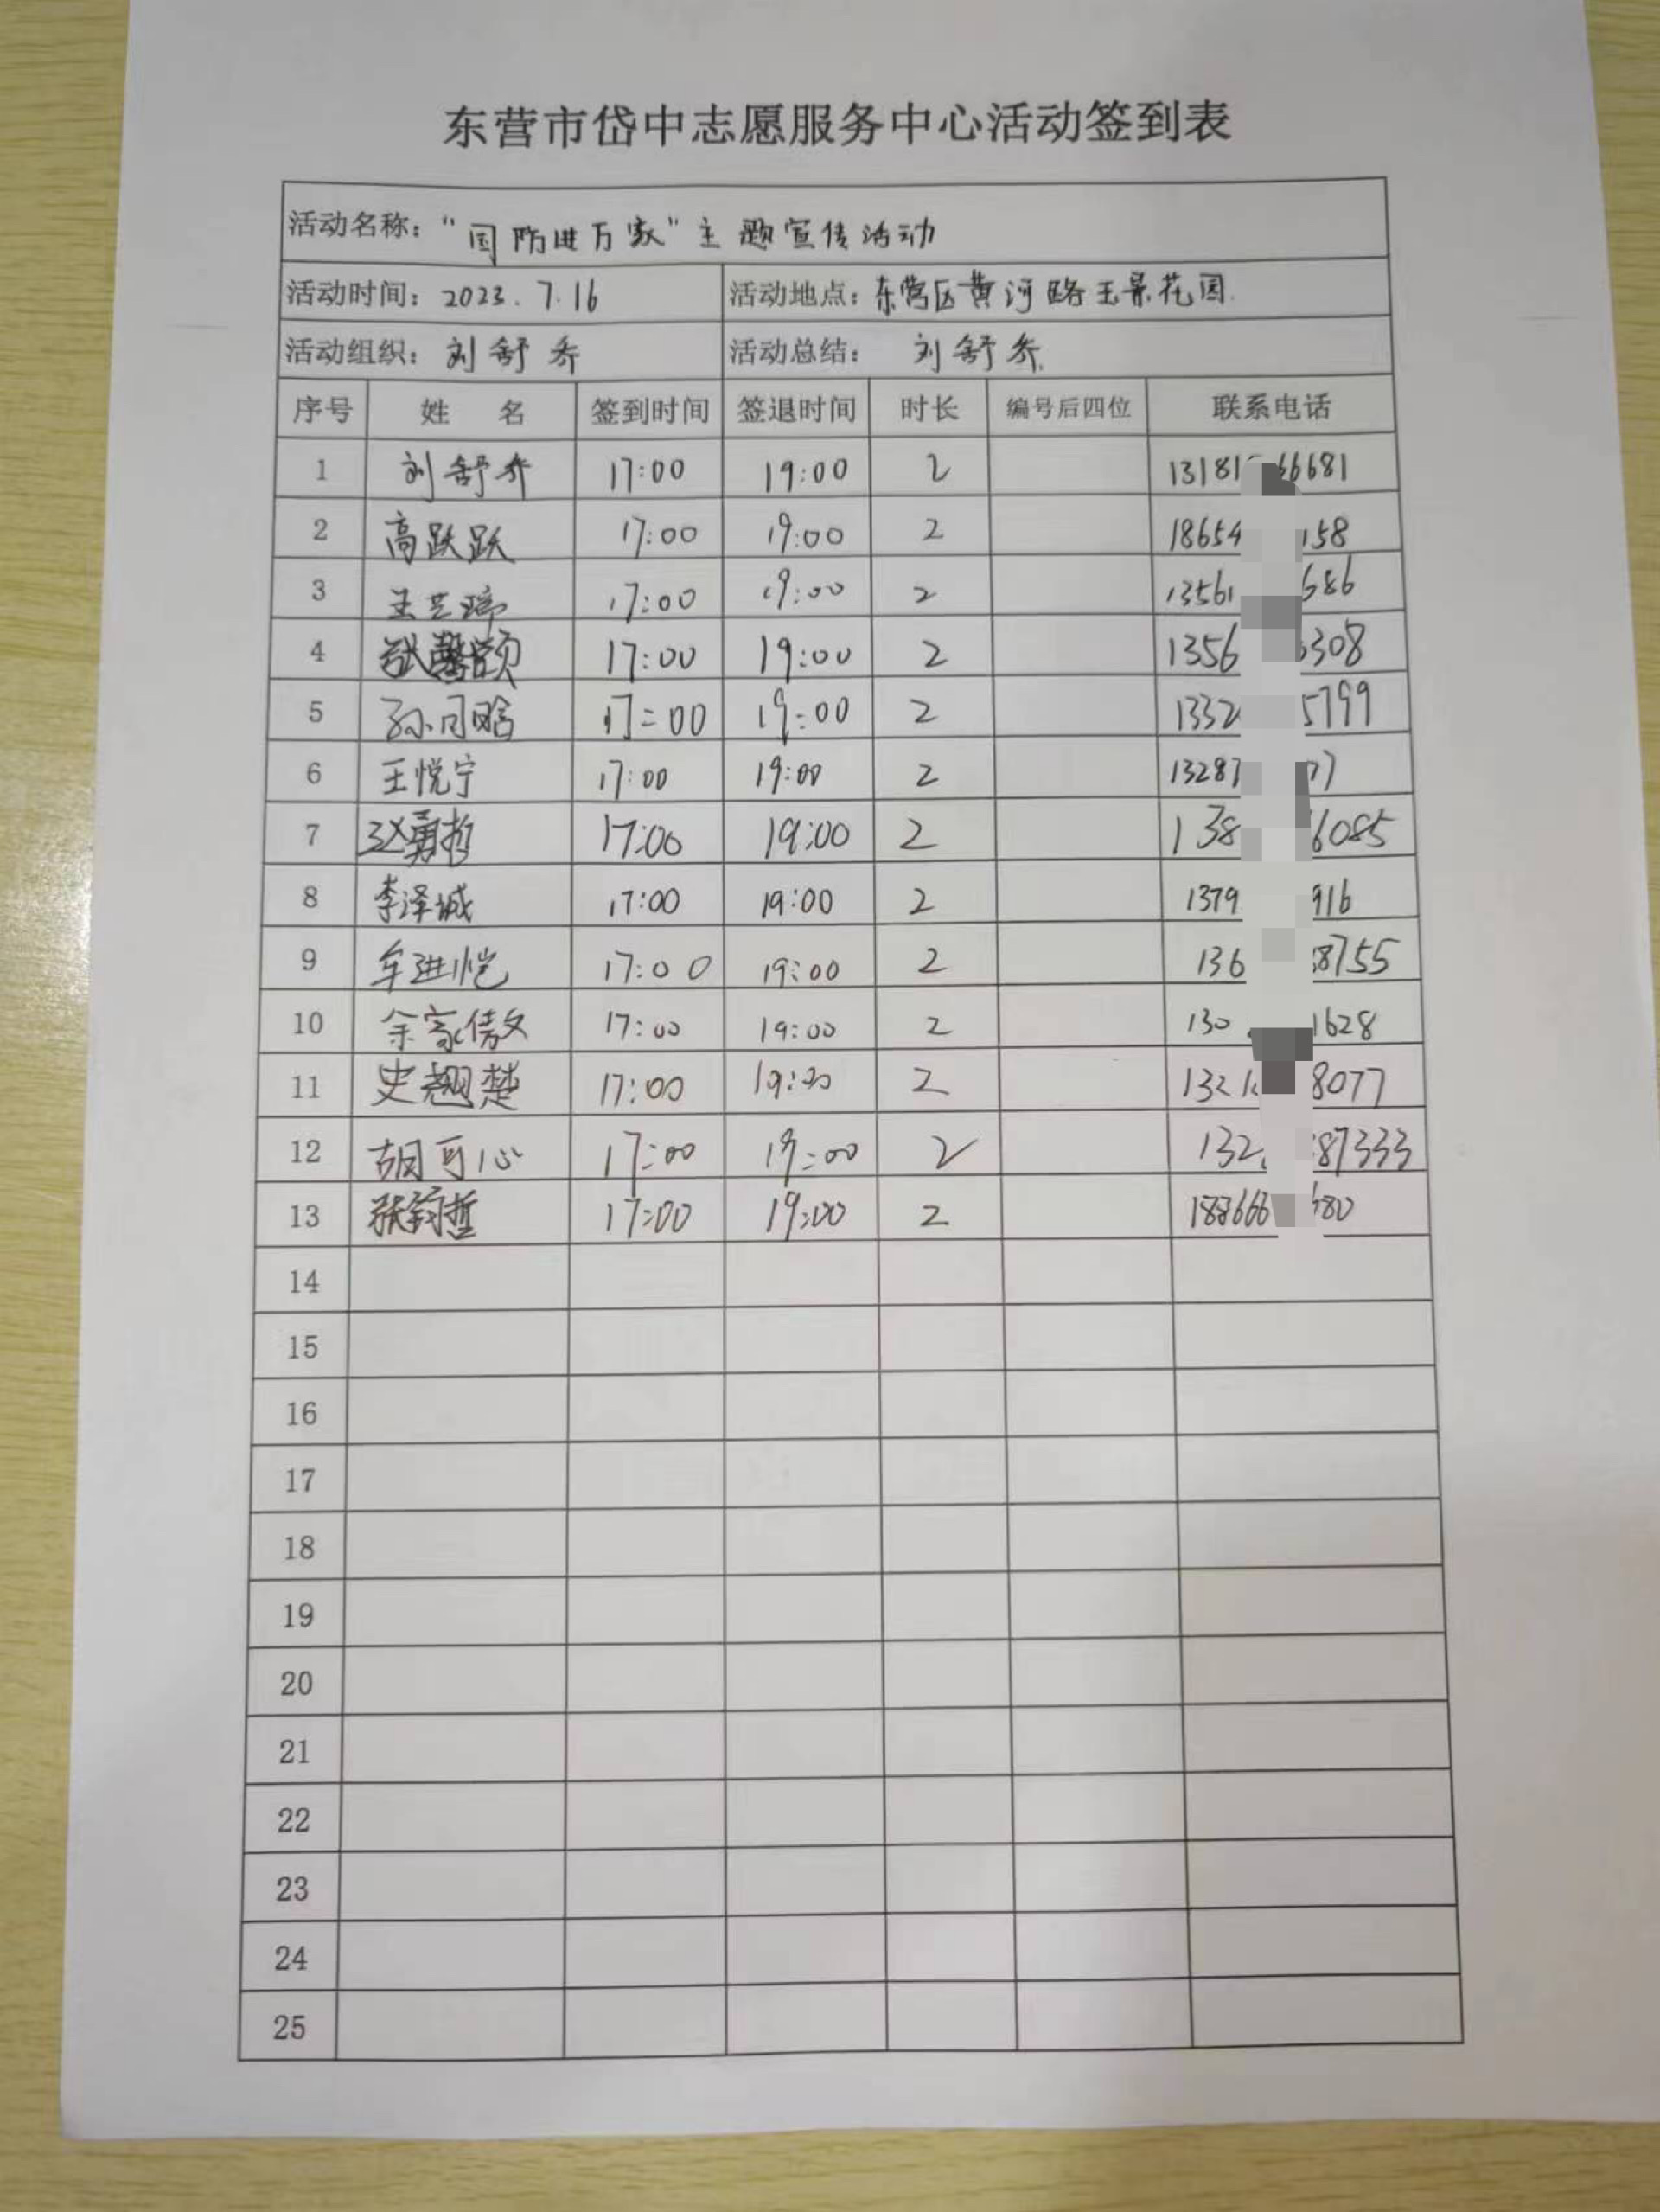 东营市岱中志愿服务中心活动签到表
活动名称："国防进万家"主题宣传活动
活动时间：2023.7.16 活动地点：东营区黄河路玉景花园
活动组织：刘舒乔 活动总结：刘舒乔
序号 姓 名 签到时间 签退时间 时长 编号后四位 联系电话
1 刘舒乔 17:00 19:00 2 13181 66681
2 高跃跃 17:00 19:00 2 18654 158
3 王艺 17:00 19:00 2 13561 686
4 17:00 19:00 2 1356 308
5 孙同晗 17:00 19:00 2 1332 5799
6 王悦宁 17:00 19:00 2 13287 77
7 赵勇哲 17:00 19:00 2 138 6085
8 李泽诚 17:00 19:00 2 1379 916
9 牟进恺 17:00 19:00 2 136 8755
10 余家傲 17:00 19:00 2 130 1628
11 史翘楚 17:00 19:00 2 1321 8077
12 胡可心 17:00 19:00 2 132 87333
13 17:00 19:00 2 188666 680
14
15
16
17
18
19
20
21
22
23
24
25